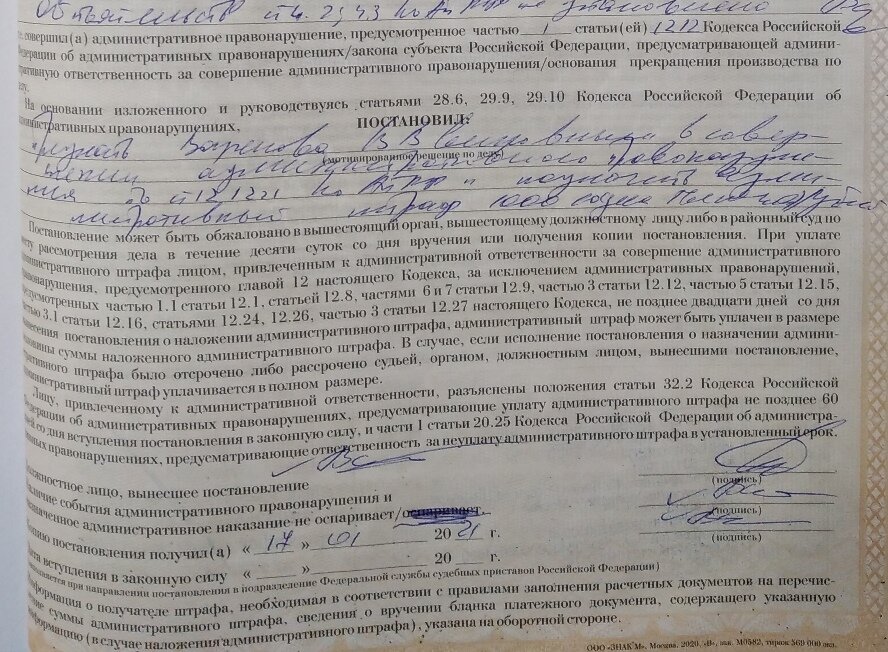 ст. 4.2, 4.3 КоАП РФ не установлено
совершил(а) административное правонарушение, предусмотренное частью 1 статьи(ей) 12.12 Кодекса Российской
Федерации об административных правонарушениях/закона субъекта Российской Федерации, предусматривающей админи-
стративную ответственность за совершение административного правонарушения/основания прекращения производства по
делу.
На основании изложенного и руководствуясь статьями 28.6, 29.9, 29.10 Кодекса Российской Федерации об
административных правонарушениях, ПОСТАНОВИЛ:
признать В В виновным в совер-
(мотивированное решение по делу)
шении административного правонаруше-
ния по 12.12 ч1 КоАП РФ и назначить адми-
нистративный штраф 1000 одна тысяча рублей
Постановление может быть обжаловано в вышестоящий орган, вышестоящему должностному лицу либо в районный суд по
месту рассмотрения дела в течение десяти суток со дня вручения или получения копии постановления. При уплате
административного штрафа лицом, привлеченным к административной ответственности за совершение административного
правонарушения, предусмотренного главой 12 настоящего Кодекса, за исключением административных правонарушений,
предусмотренных частью 1.1 статьи 12.1, статьей 12.8, частями 6 и 7 статьи 12.9, частью 3 статьи 12.12, частью 5 статьи 12.15,
частью 3.1 статьи 12.16, статьями 12.24, 12.26, частью 3 статьи 12.27 настоящего Кодекса, не позднее двадцати дней со дня
вынесения постановления о наложении административного штрафа, административный штраф может быть уплачен в размере
половины суммы наложенного административного штрафа. В случае, если исполнение постановления о назначении админи-
стративного штрафа было отсрочено либо рассрочено судьей, органом, должностным лицом, вынесшими постановление,
административный штраф уплачивается в полном размере.
Лицу, привлеченному к административной ответственности, разъяснены положения статьи 32.2 Кодекса Российской
Федерации об административных правонарушениях, предусматривающие уплату административного штрафа не позднее 60
дней со дня вступления постановления в законную силу, и части 1 статьи 20.25 Кодекса Российской Федерации об администра-
тивных правонарушениях, предусматривающие ответственность за неуплату административного штрафа в установленный срок.
Должностное лицо, вынесшее постановление
(подпись)
Наличие события административного правонарушения и
назначенное административное наказание не оспаривает/оспаривает.
(подпись)
Копию постановления получил(а) « 17 » 01 20 21 г.
(подпись)
Дата вступления в законную силу « » 20 г.
(заполняется при направлении постановления в подразделение Федеральной службы судебных приставов Российской Федерации)
Информация о получателе штрафа, необходимая в соответствии с правилами заполнения расчетных документов на перечис-
ление суммы административного штрафа, сведения о вручении бланка платежного документа, содержащего указанную
информацию (в случае наложения административного штрафа), указана на оборотной стороне.
ООО «ЗНАК М», Москва, 2020, «В», зак. М0582, тираж 569 000 экз.